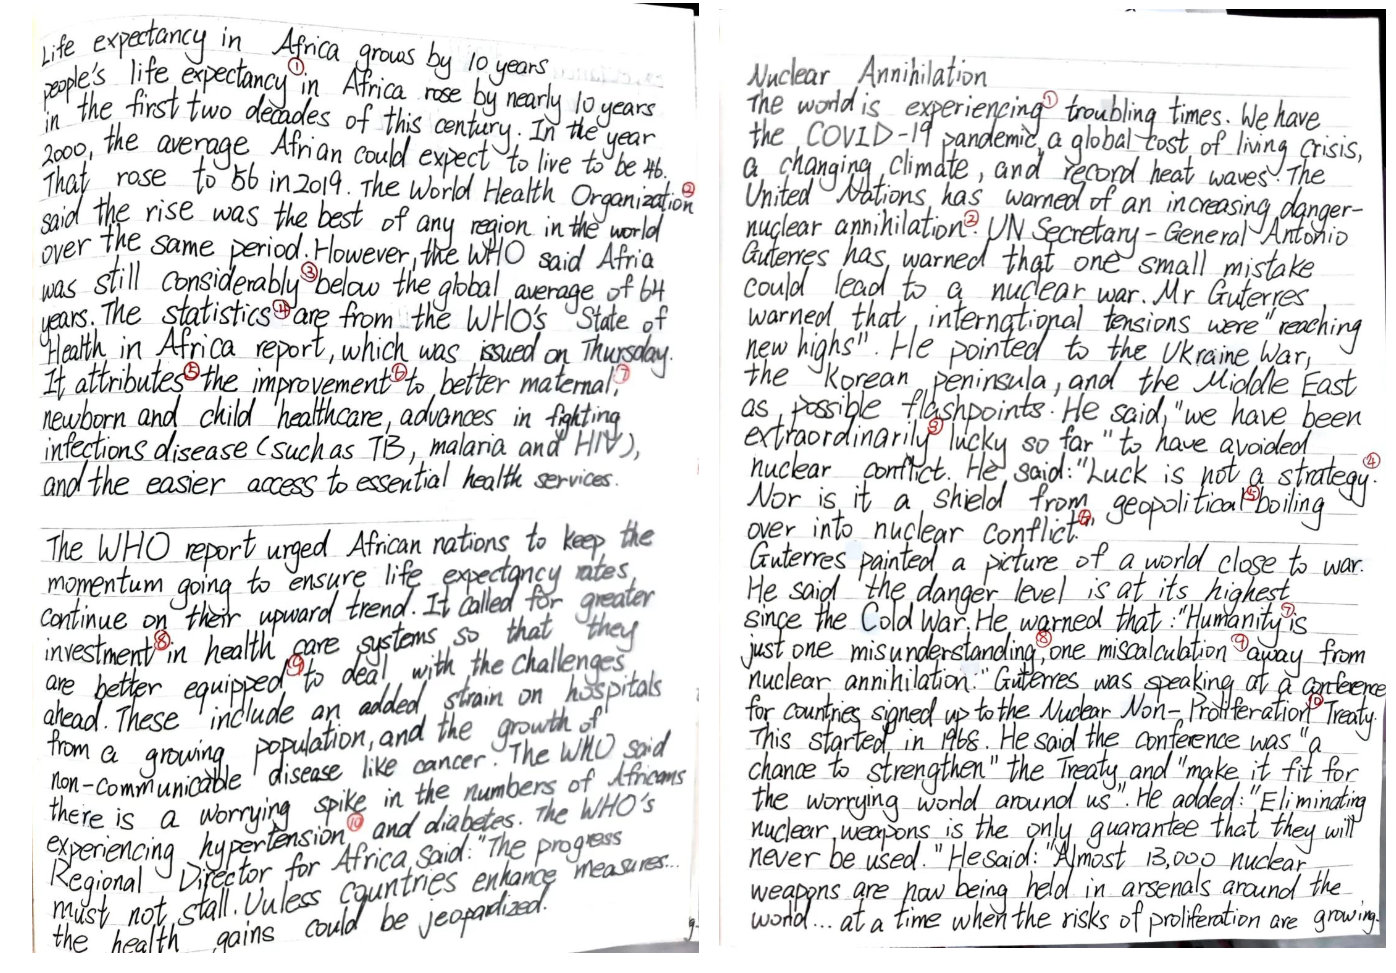 Life expectancy in Africa grows by 10 years
people's life expectancy ① in Africa rose by nearly 10 years
in the first two decades of this century. In the year
2000, the average Afrian could expect to live to be 46.
That rose to 56 in 2019. The World Health Organization ②
said the rise was the best of any region in the world
over the same period. However, the WHO said Afria
was still considerably ③ below the global average of 64
years. The statistics ④ are from the WHO's State of
Health in Africa report, which was issued on Thursday.
It attributes ⑤ the improvement ⑥ to better maternal, ⑦
newborn and child healthcare, advances in fighting
infections disease (such as TB, malaria and HIV),
and the easier access to essential health services.
The WHO report urged African nations to keep the
momentum going to ensure life expectancy rates
continue on their upward trend. It called for greater
investment ⑧ in health care systems so that they
are better equipped ⑨ to deal with the challenges
ahead. These include an added strain on hospitals
from a growing population, and the growth of
non-communicable disease like cancer. The WHO said
there is a worrying spike in the numbers of Africans
experiencing hypertension ⑩ and diabetes. The WHO's
Regional Director for Africa said: "The progress
must not stall. Unless countries enhance measures...
the health gains could be jeopardized.
Nuclear Annihilation
The world is experiencing ① troubling times. We have
the COVID-19 pandemic, a global cost of living crisis,
a changing climate, and record heat waves. The
United Nations has warned of an increasing danger-
nuclear annihilation ②. UN Secretary-General Antonio
Guterres has warned that one small mistake
could lead to a nuclear war. Mr Guterres
warned that international tensions were "reaching
new highs". He pointed to the Ukraine War,
the Korean peninsula, and the Middle East
as possible flashpoints. He said, "we have been
extraordinarily ③ lucky so far" to have avoided
nuclear conflict. He said: "Luck is not a strategy. ④
Nor is it a shield from geopolitical ⑤ boiling
over into nuclear conflict ⑥."
Guterres painted a picture of a world close to war.
He said the danger level is at its highest
since the Cold War. He warned that: "Humanity ⑦ is
just one misunderstanding ⑧, one miscalculation ⑨ away from
nuclear annihilation." Guterres was speaking at a conference
for countries signed up to the Nuclear Non-Proliferation ⑩ Treaty.
This started in 1968. He said the conference was "a
chance to strengthen" the Treaty and "make it fit for
the worrying world around us". He added: "Eliminating
nuclear weapons is the only guarantee that they will
never be used." He said: "Almost 13,000 nuclear
weapons are now being held in arsenals around the
world... at a time when the risks of proliferation are growing.